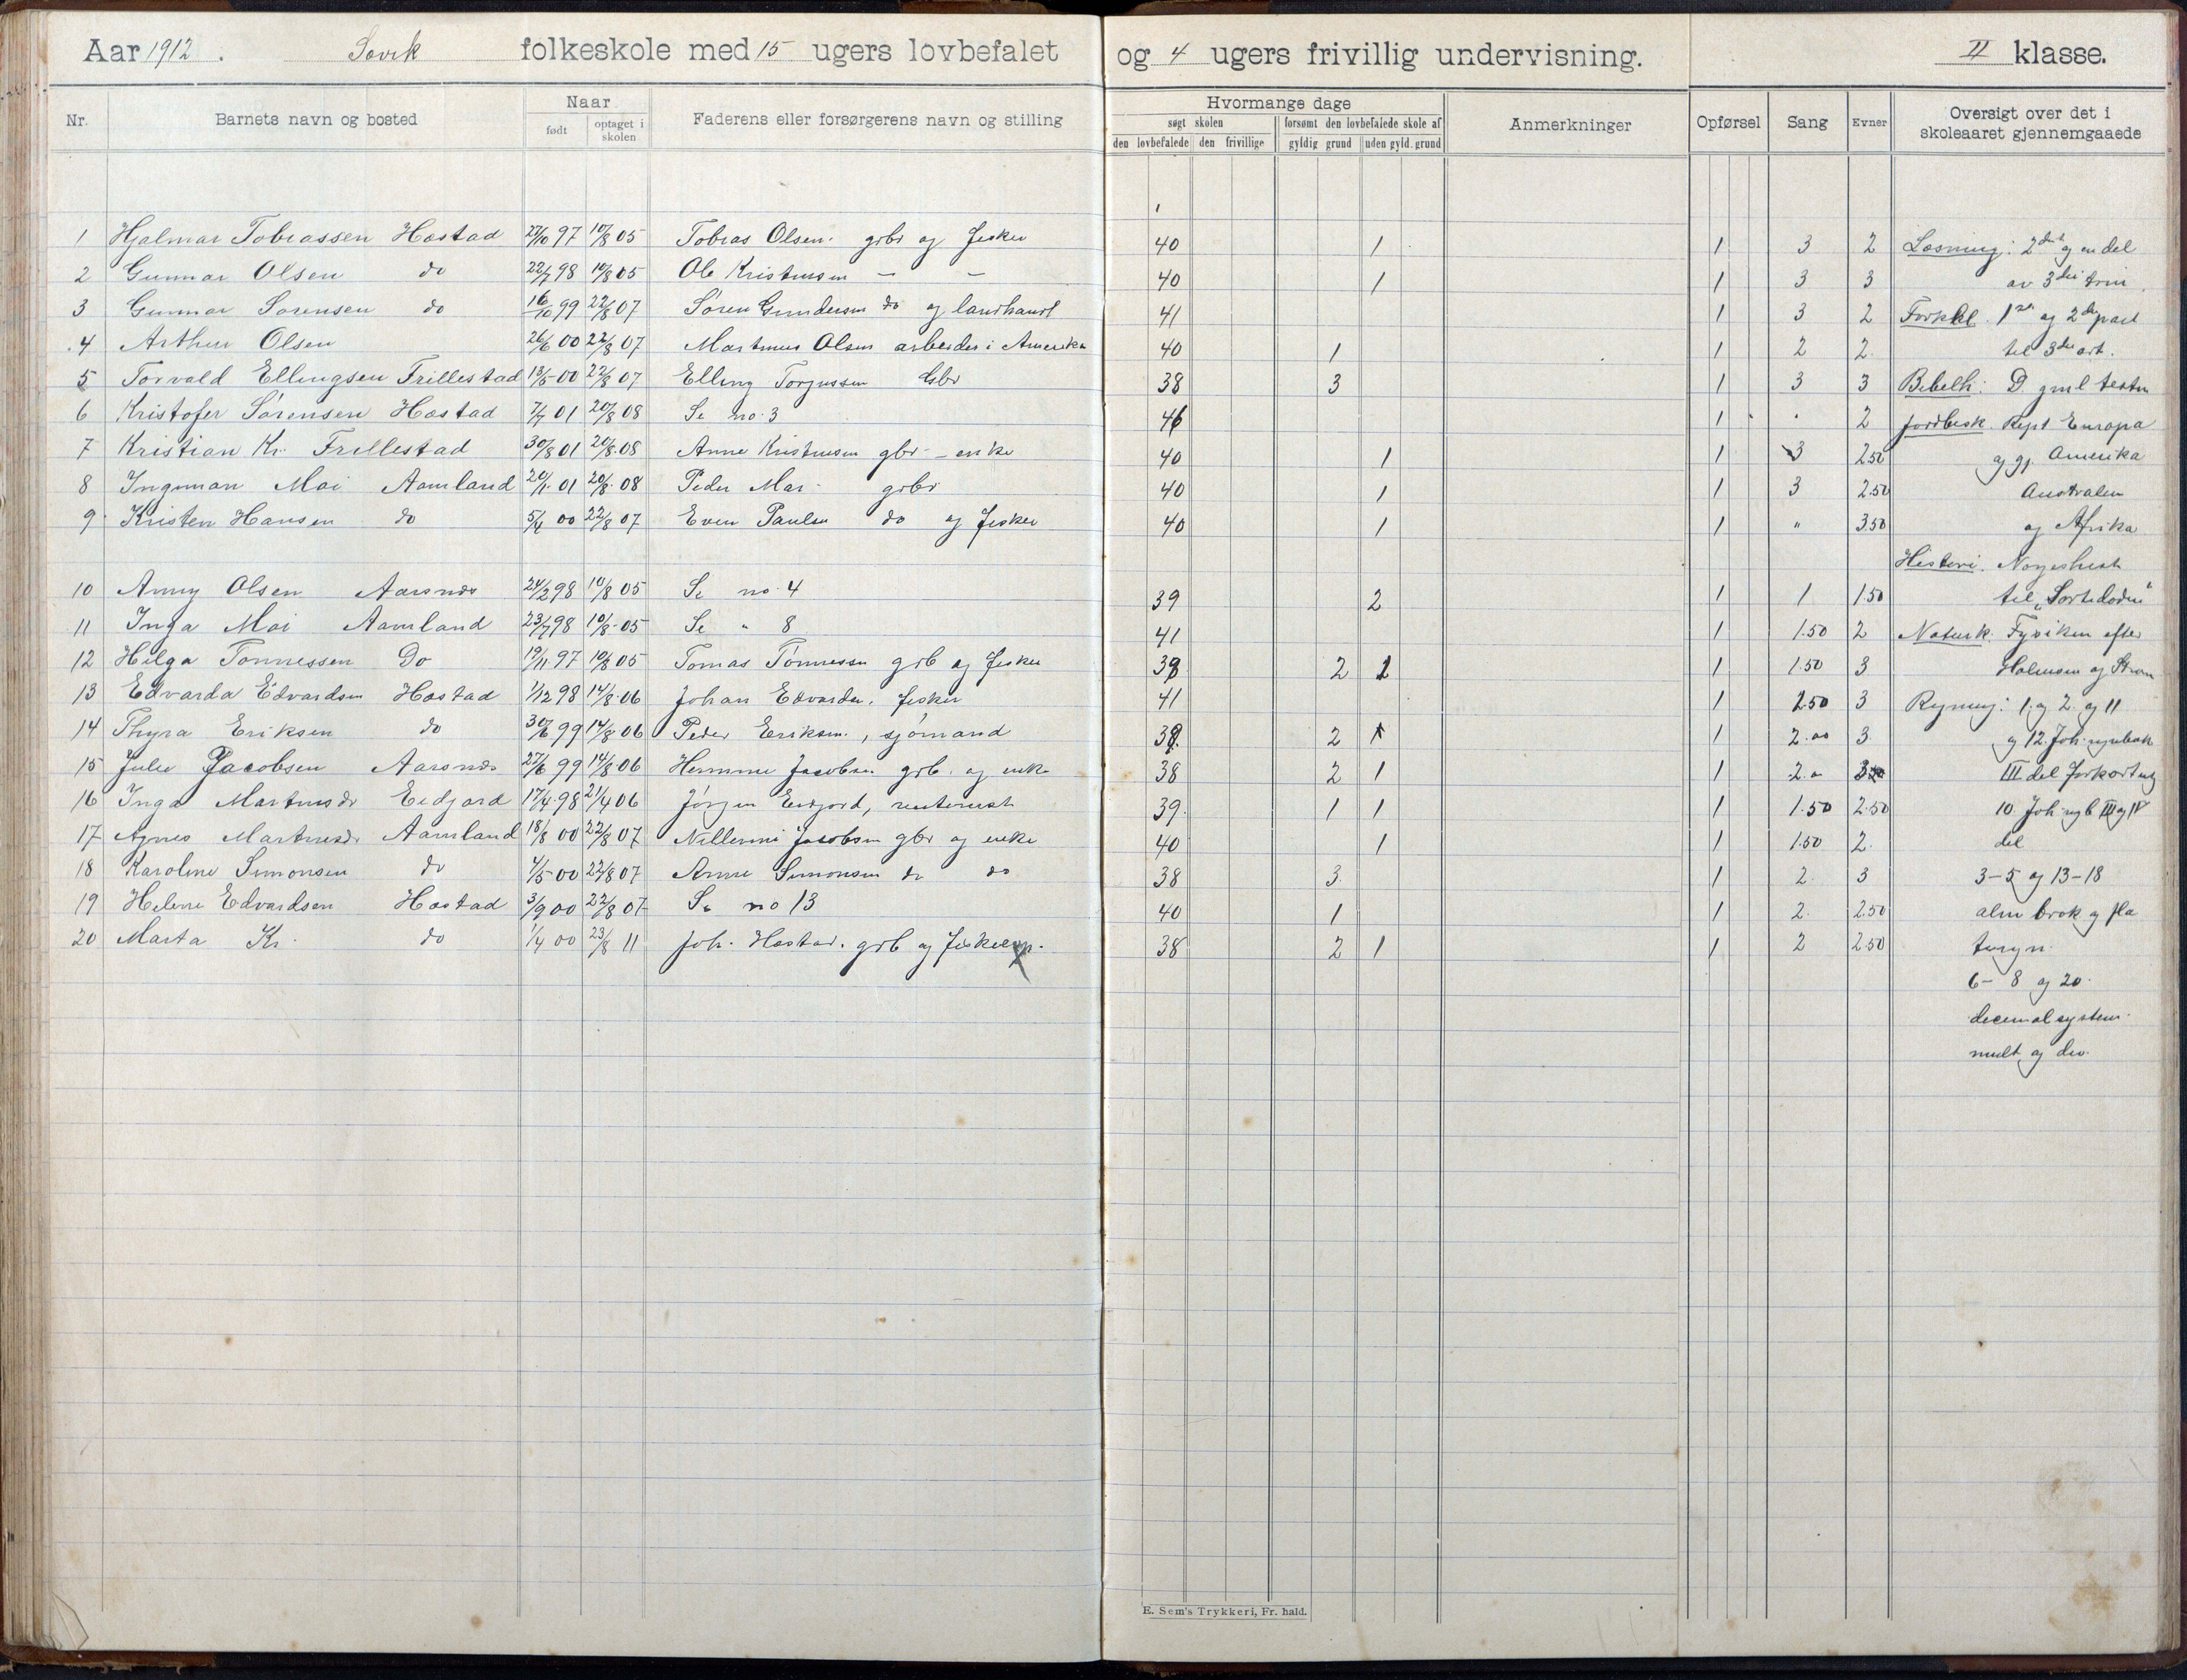 Aar 1912. Søvik folkeskole med 15 ugers lovbefalet og 4 ugers frivillig undervisning. II klasse.
Nr. Barnets navn og bosted Naar født optaget i skolen Faderens eller forsørgerens navn og stilling Hvormange dage søgt skolen den lovbefalede den frivillige forsømt den lovbefalede skole af gyldig grund uden gyld. grund Anmerkninger Opførsel Sang Evner Oversigt over det i skoleaaret gjennemgaaede
1 Hjalmar Tobiassen Hæstad 27/10 97 10/8 05 Tobias Olsen. grbr og fisker 40 1 1 3 2 Læsning: 2det og en del
2 Gunnar Olsen do 22/7 98 10/8 05 Ole Kristensen — — 40 1 1 3 3 av 3die trin.
3 Gunnar Sørensen do 16/10 99 22/8 07 Søren Gundersen do og landhandl 41 1 3 2 Forkl. 1ste og 2den part
4 Arthur Olsen 26/6 00 22/8 07 Martinus Olsen arbeider i Amerika 40 1 1 2 2. til 3die art.
5 Torvald Ellingsen Trillestad 13/5 00 22/8 07 Elling Torjussen Gbr 38 3 1 3 3 Bibelh: D gml testm
6 Kristofer Sørensen Hæstad 7/7 01 20/8 08 Se no 3 46 1 2 Jordbesk. Rept Europa
7 Kristian Kr. Frillestad 30/8 01 20/8 08 Anne Kristensen gbr - enke 40 1 1 3 2.50 og gj. Amerika
8 Ingeman Moi Aamland 20/11 01 20/8 08 Peder Moi grbr 40 1 1 3 2.50 Australien
9 Kristen Hansen do 5/4 00 22/8 07 Even Paulsen do og fisker 40 1 1 " 3.50 og Afrika
Historie. Norgeshist
10 Anny Olsen Aarsnes 24/2 98 10/8 05 Se no 4 39 2 1 1 1.50 til "Sortedøden"
11 Inga Moi Aamland 23/7 98 10/8 05 Se " 8 41 1 1.50 2 Naturk. Fysiken efter
12 Helga Tønnessen Do 19/11 97 10/8 05 Tomas Tønnessen grb og fisker 38 2 1 1 1.50 3 Holmsen og Strøm
13 Edvarda Edvardsen Hæstad 1/12 98 14/8 06 Johan Edvardsen, fisker 41 1 2.50 3 Regning: 1. og 2. og 11
14 Thyra Eriksen do 30/6 99 14/8 06 Peder Eriksen, sjømand 38. 2 1 1 2.00 3 og 12. Joh. regnebok
15 Julie Jacobsen Aarsnes 27/6 99 14/8 06 Jacobsen grb. og enke 38 2 1 1 2.0 III del forkortning
16 Inga Martinusdr Eidjord 17/4 98 21/4 06 Jørgen Eidjord, 39. 1 1 1 1.50 2.50 10 Joh regb III og IV
17 Agnes Martinusdr Aamland 18/8 00 22/8 07 Jacobsen gbr og enke 40 1 1 1.50 2. del
18 Karoline Simonsen do 4/5 00 22/8 07 Anne Simonsen do do 38 3. 1 2. 3 3-5 og 13-18
19 Helene Edvardsen Hæstad 3/9 00 22/8 07 Se no 13 40 1 1 2. 2.50 alm brøk og fla
20 Marta Kr. do 1/4 00 23/8 11 Joh. Hæstad. grb og 38 2 1 1 2 2.50 teregn.
6-8 og 20.
decimalsystem.
mult og div.
E. Sem's Trykkeri, Fr. hald.